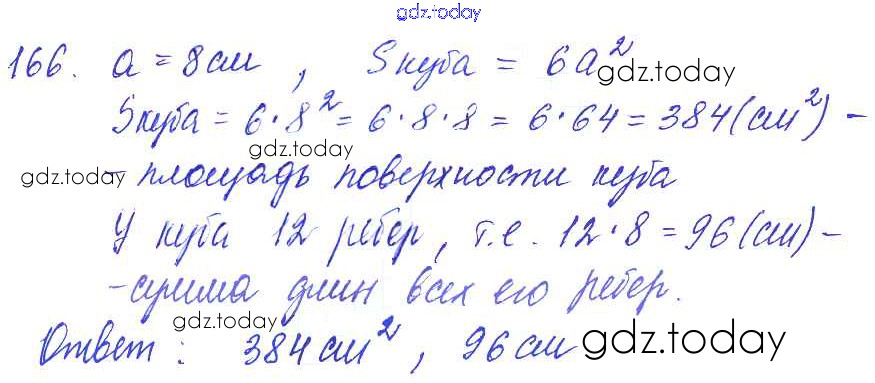 gdz.today
166. a = 8 см , Sкуба = 6a²
gdz.today
Sкуба = 6·8² = 6·8·8 = 6·64 = 384 (см²) –
gdz.today
gdz.today
– площадь поверхности куба
У куба 12 ребер, т.е. 12·8 = 96 (см) –
– сумма длин всех его ребер.
gdz.today
Ответ: 384 см², 96 см
gdz.today